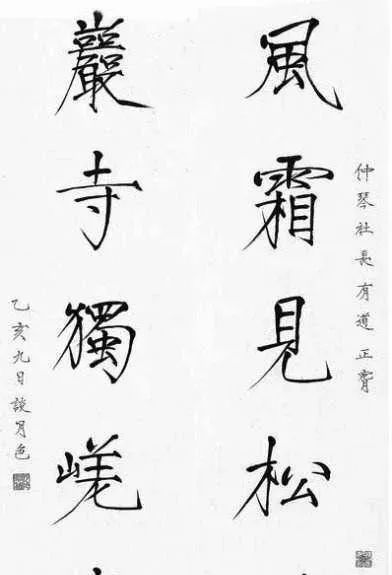 仲琴社長有道正
風霜見松
巖寺獨嵯
乙亥九日談月色